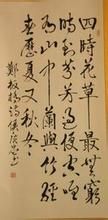 四時花草最無窮
時到芬芳過便空
唯有山中蘭與竹
經春歷夏又秋冬
鄭板橋詩